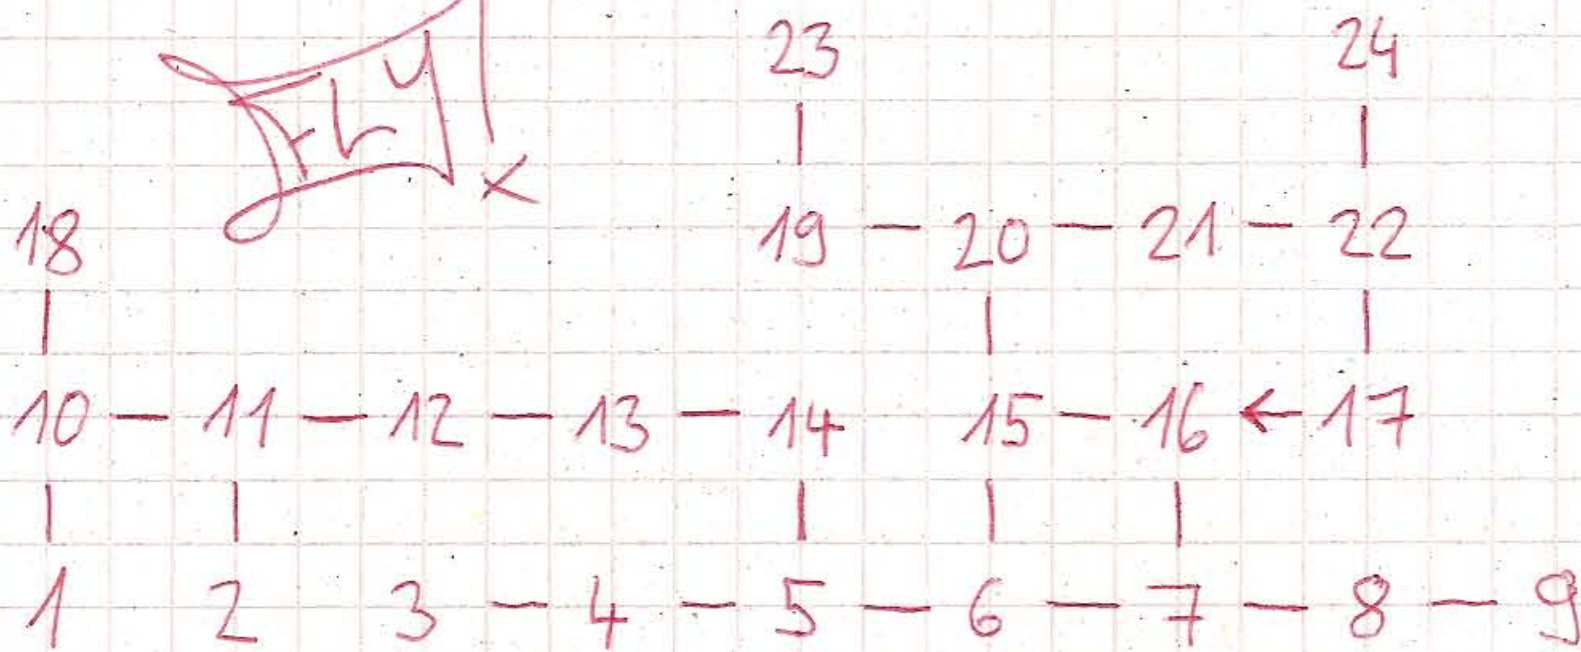 23 24
FLY!
x
18 19 - 20 - 21 - 22
10 - 11 - 12 - 13 - 14 15 - 16 ← 17
1 2 3 - 4 - 5 - 6 - 7 - 8 - 9